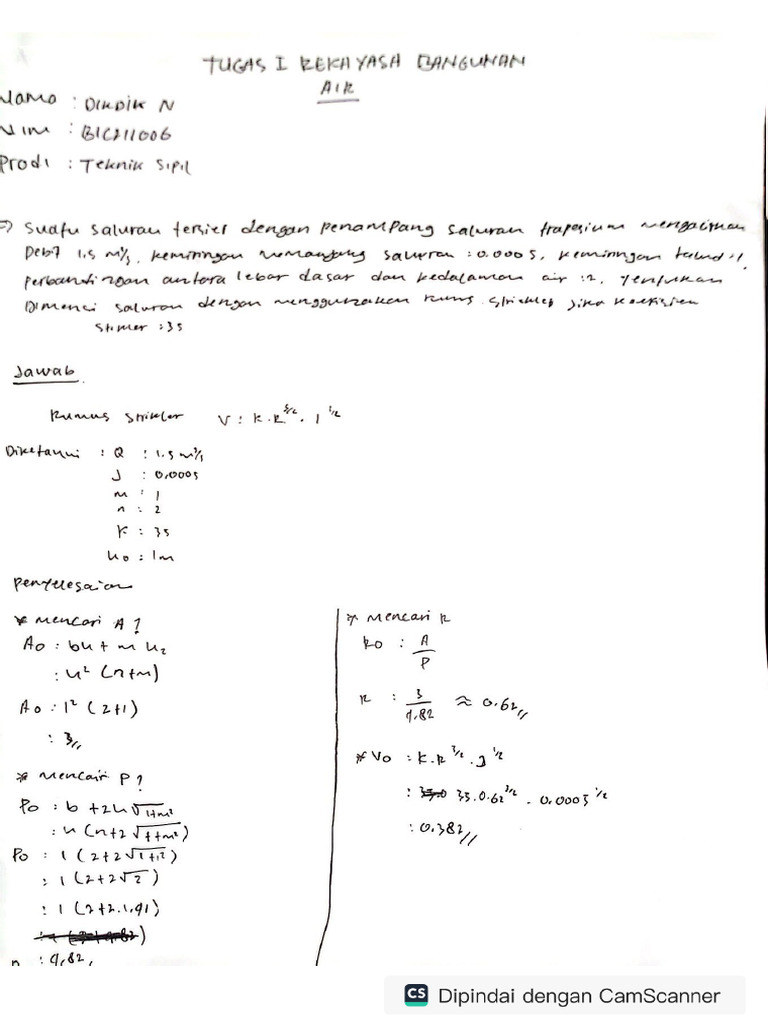 TUGAS I REKAYASA BANGUNAN
AIR
Nama : Dikdik N
Nim : B1C211006
Prodi : Teknik Sipil
Suatu saluran tersier dengan penampang saluran trapesium mengalirkan
Debit 1.5 m³/s, kemiringan memanjang saluran : 0.0005, kemiringan talud 1:1,
perbandingan antara lebar dasar dan kedalaman air : 2, Tentukan
Dimensi saluran dengan menggunakan rumus strickler jika koefisien
: 35
Jawab
Rumus strikler V : K.R^2/3 . I^1/2
Diketahui : Q : 1.5 m³/s
J : 0.0005
m : 1
n : 2
K : 35
ho : 1m
Penyelesaian
* Mencari A ?
Ao : bh + m h2
: h² (n+m)
Ao : 1² (2+1)
: 3//
* Mencari P ?
Po : b + 2h√1+m²
: h (n+2 √1+m²)
Po : 1 (2+2√1+1²)
: 1 (2+2√2)
: 1 (2+2.1,41)
: 4,82,
* Mencari R
Ro : A/P
R : 3/4.82 ≈ 0.62//
* Vo : K.R^2/3 . J^1/2
: 35.0.62^2/3 . 0.0005^1/2
: 0.382//
CS Dipindai dengan CamScanner